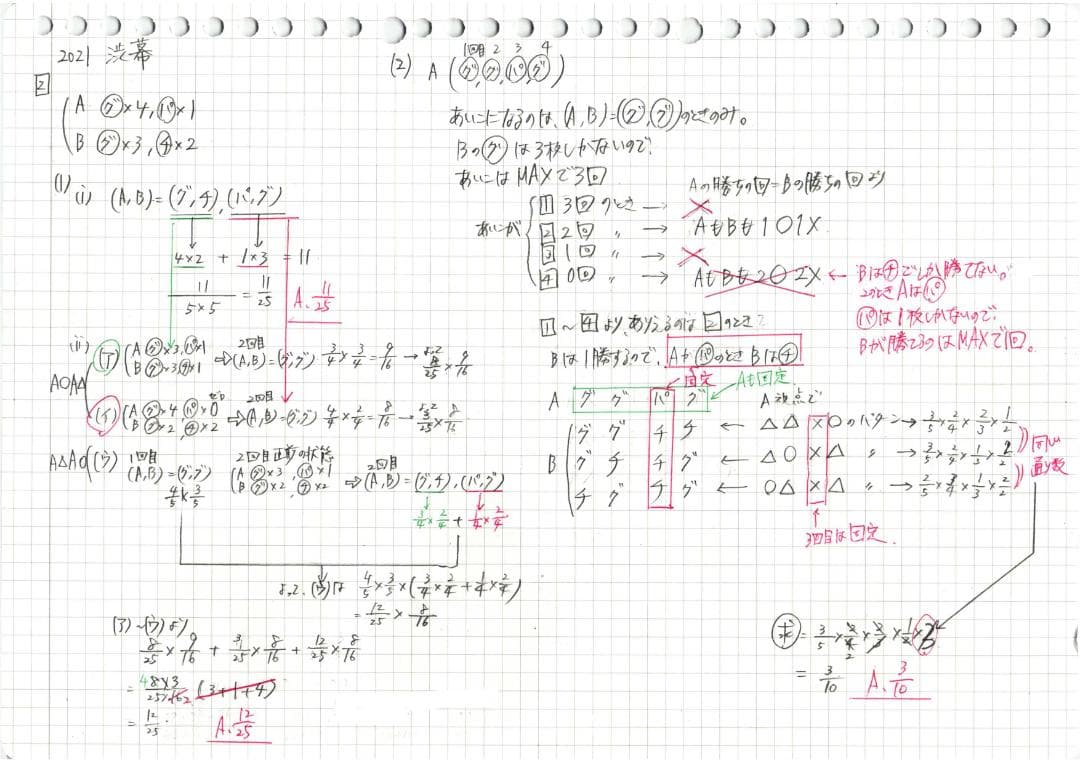 2021 渋幕
2
A グ×4, パ×1
B グ×3, チ×2
(1)
(i) (A, B) = (グ, チ), (パ, グ)
4×2 + 1×3 = 11
11/5×5 = 11/25
A. 11/25
(ii)
A○A△
(ア) (A グ×3, パ×1
B グ×3, チ×1
2回目
⇨(A, B) = (グ, グ) 3/4 × 3/4 = 9/16 → よって 8/25 × 9/16
(イ) (A グ×4 パ×0
B グ×2, チ×2
2回目
⇨(A, B) = (グ, グ) 4/4 × 2/4 = 8/16 → よって 3/25 × 8/16
A△A○ (ウ) 1回目
(A, B) = (グ, グ)
4/5 × 3/5
2回目直前の状態
(A グ×3, パ×1
B グ×2, チ×2
2回目
⇨(A, B) = (グ, チ), (パ, グ)
3/4 × 2/4 + 1/4 × 2/4
よって, (ウ)は 4/5 × 3/5 × (3/4 × 2/4 + 1/4 × 2/4)
= 12/25 × 8/16
(ア)~(ウ)より
8/25 × 9/16 + 3/25 × 8/16 + 12/25 × 8/16
= 48×3/25×16 2 (3+1+4)
= 12/25
A. 12/25
(2) A (グ, グ, パ, グ)
1回目 2 3 4
あいこになるのは, (A, B) = (グ, グ)のときのみ。
Bのグは3枚しかないので,
あいこはMAXで3回
Aの勝ちの回=Bの勝ちの回より
あいこが
1 3回のとき → ×
2 2回 〃 → AもBも1○1×
3 1回 〃 → ×
4 0回 〃 → AもBも2○2×
← Bはチでしか勝てない。
2のときAはパ
パは1枚しかないので,
Bが勝てるのはMAXで1回。
1~4より, ありえるのは2のとき
Bは1勝するので, AがパのときBはチ
固定
Aも固定
A グ グ パ グ
A視点で
B
グ グ チ チ ← △△×○のパターン → 3/5 × 2/4 × 2/3 × 1/2
グ チ チ グ ← △○×△ 〃 → 3/5 × 2/4 × 1/3 × 2/2
チ グ チ グ ← ○△×△ 〃 → 2/5 × 3/4 × 1/3 × 2/2
同じ
通り数
3回目は固定
求 = 3/5 × 2/4 × 2/3 × 1/2 × 3
= 3/10
A. 3/10